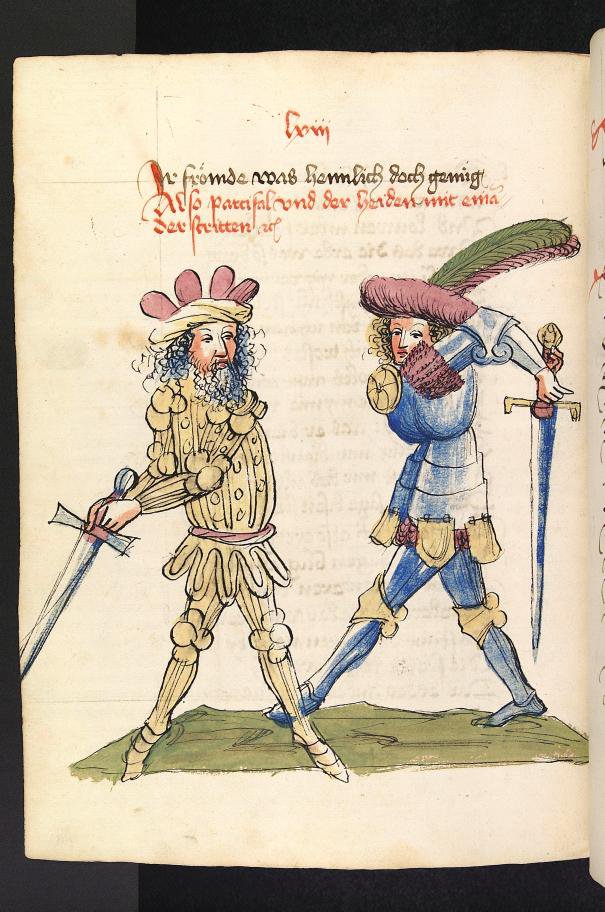 lxiii
Ir frömde was heimlich doch genüg
Also partifal vnd der heiden mit eina
der stritten